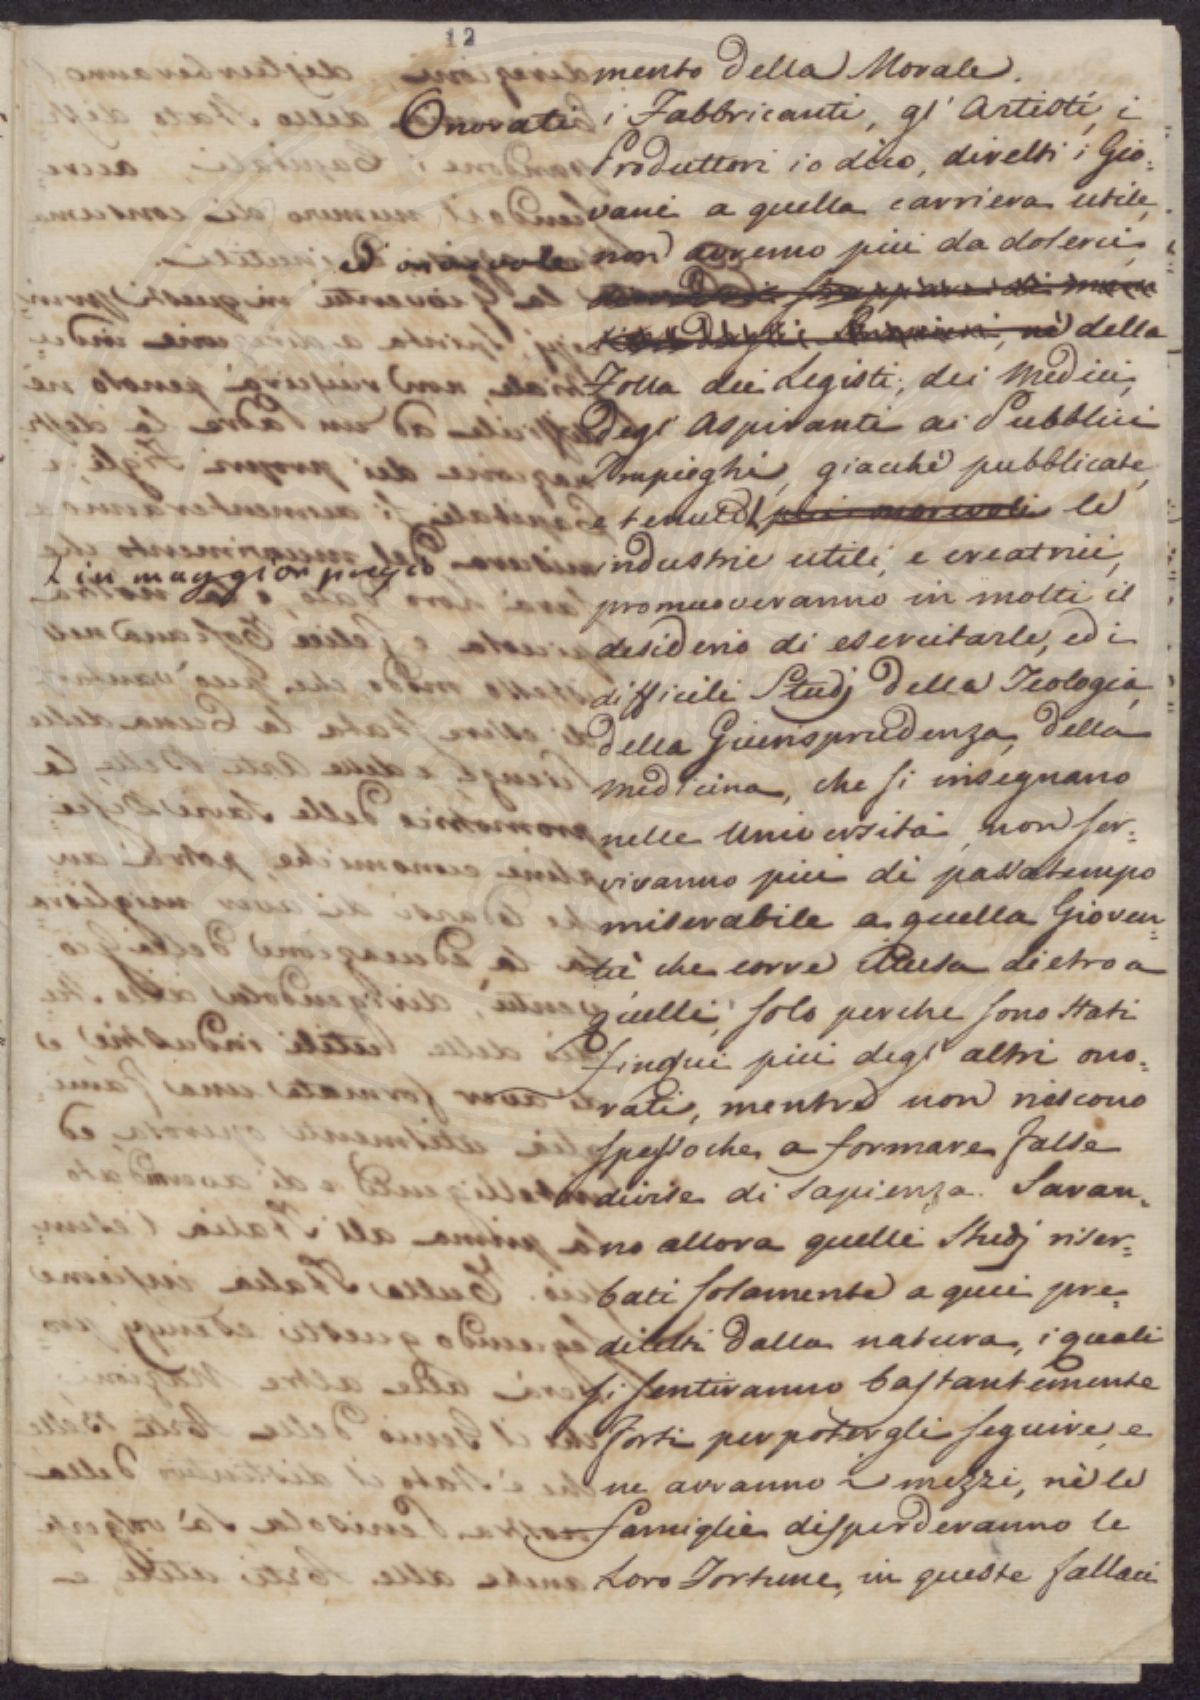 12
mento della Morale.
Onorati i Fabbricanti, gl' Artisti, i
Produttori io dico, diretti i Gio=
vani a quella carriera utile,
ed onorevole non avremo più da dolerci
né della
Folla dei Legisti, dei Medici,
degl' Aspiranti ai Pubblici
Impieghi, giacché pubblicate,
e tenute più onorevoli le
in maggior pregio
industrie utili, e creatrici,
promuoveranno in molti il
desiderio di esercitarle, ed i
difficili Studj della Teologia,
della Giurisprudenza, della
Medicina, che si insegnano
nelle Università, non ser=
viranno più di passatempo
miserabile a quella Gioven=
tù che corre illusa dietro a
quelli, solo perche sono stati
finqui più degl' altri ono=
rati, mentre non riescono
spesso che a formare false
divise di sapienza. Saran=
no allora quelli Studj riser=
bati solamente a quei pre=
diletti dalla natura, i quali
si sentiranno bastantemente
forti per potergli seguire, e
ne avranno i mezzi, nè le
Famiglie disperderanno le
Loro Fortune, in queste fallaci